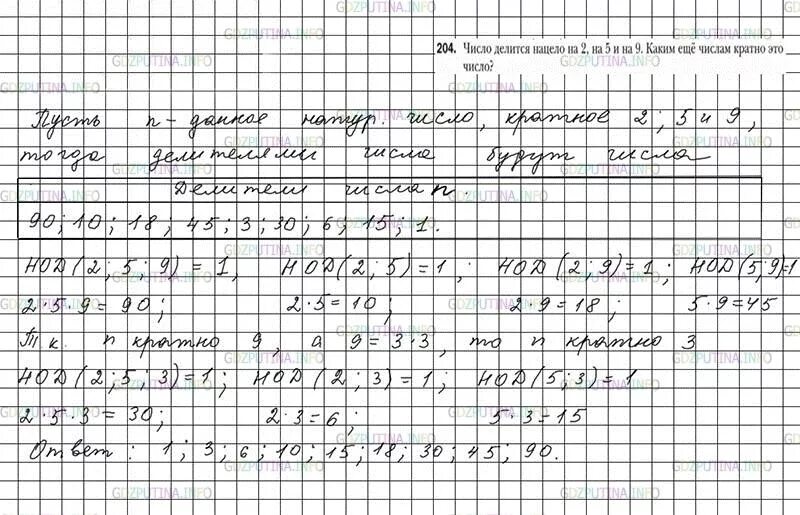 GDZPUTINA.INFO
204. Число делится нацело на 2, на 5 и на 9. Каким ещё числам кратно это
число?
Пусть n - данное натур. число, кратное 2; 5 и 9,
тогда делителями числа будут числа
Делители числа n.
90; 10; 18; 45; 3; 30; 6; 15; 1.
НОД(2; 5; 9) = 1; НОД(2; 5) = 1; НОД(2; 9) = 1; НОД(5; 9)=1
2·5·9 = 90; 2·5 = 10; 2·9 = 18; 5·9 = 45
Т.к. n кратно 9, а 9 = 3·3, то n кратно 3
НОД(2; 5; 3) = 1; НОД(2; 3) = 1; НОД(5; 3) = 1
2·5·3 = 30; 2·3 = 6; 5·3 = 15
Ответ: 1; 3; 6; 10; 15; 18; 30; 45; 90.